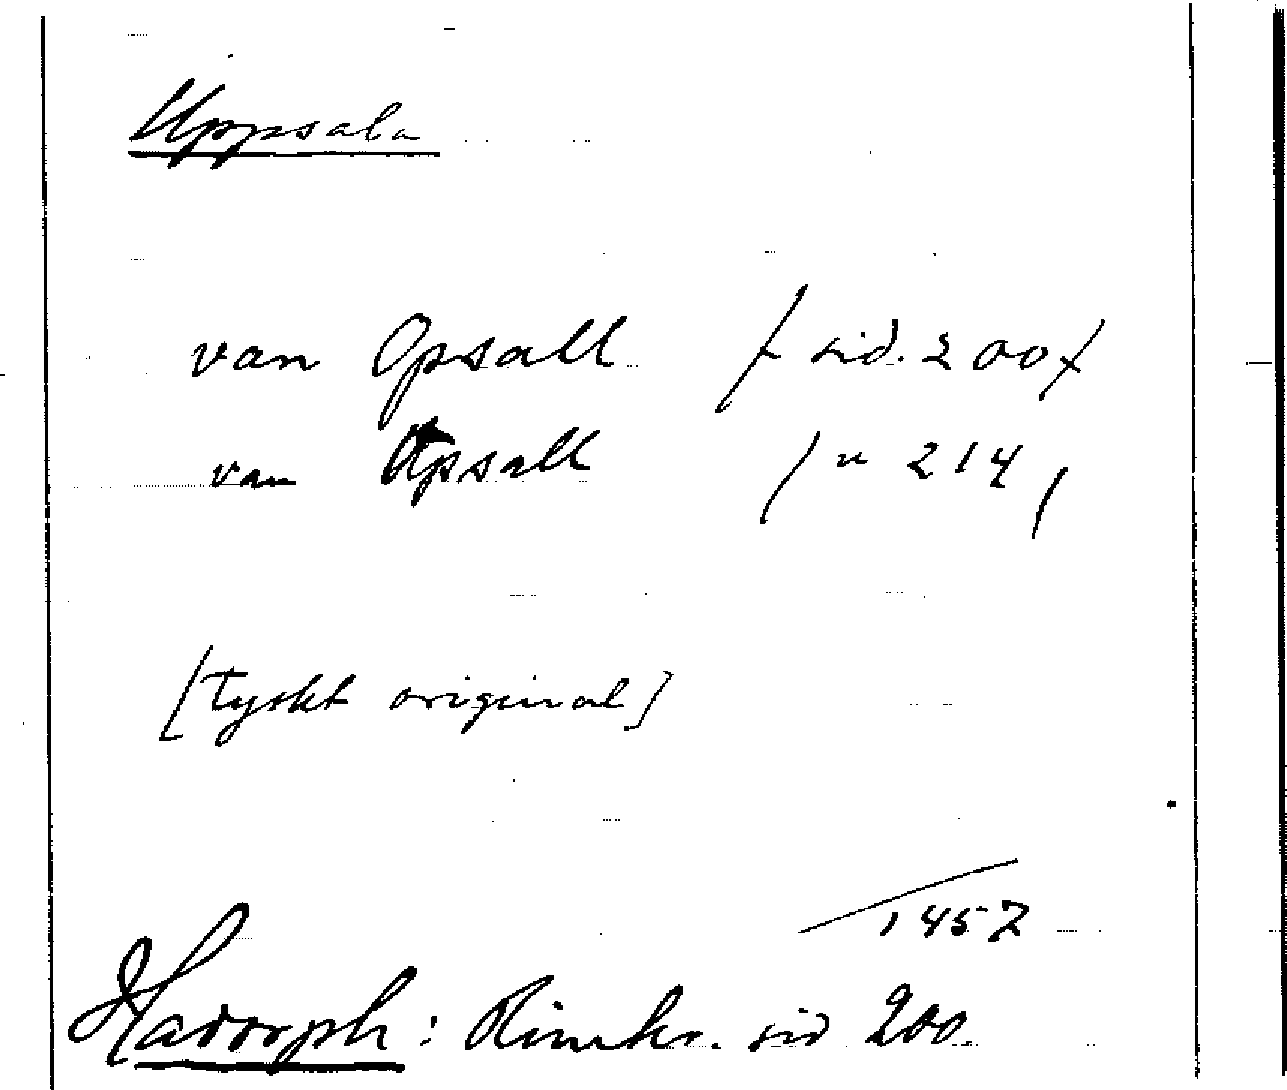 Uppsala
van Opsall / sid. 200/
van Upsall / " 214 /
[tyskt original]
1457
Hadorph: Rimkr. sid 200.